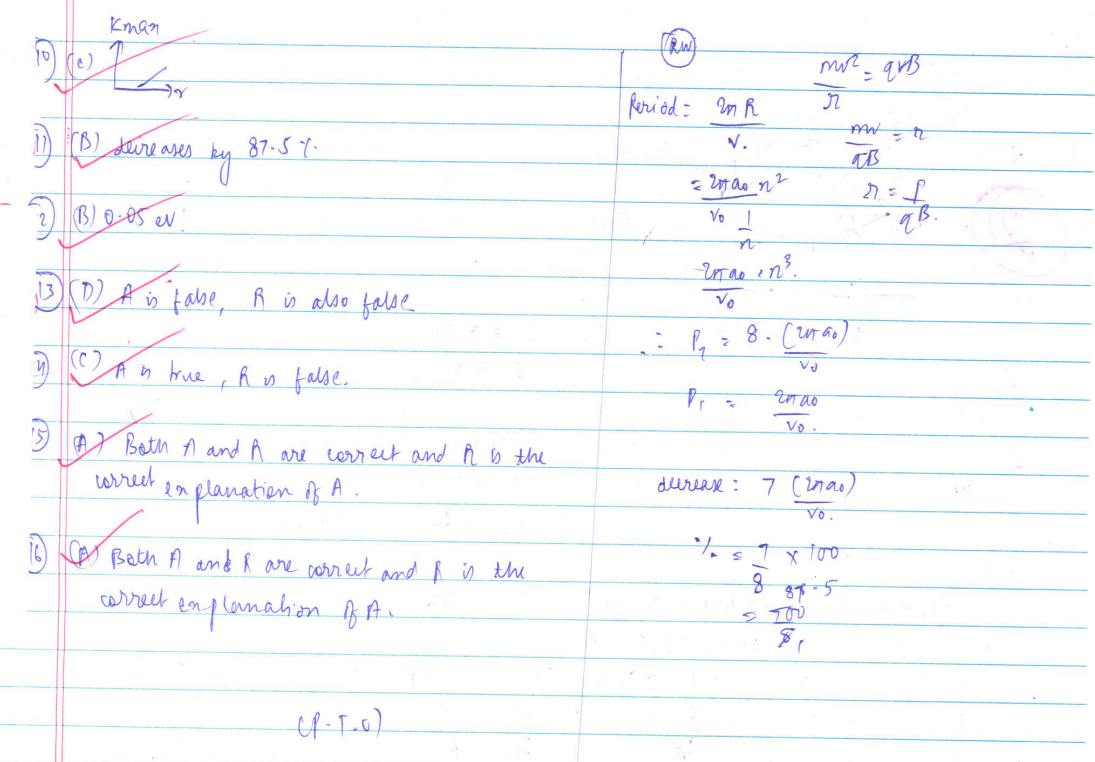 10) (C) Kmax
ν
11) (B) decreases by 87.5 %.
2) (B) 0.05 eV.
13) (D) A is false, R is also false
4) (C) A is true, R is false.
15) (A) Both A and R are correct and R is the
correct explanation of A.
16) (A) Both A and R are correct and R is the
correct explanation of A.
(P.T.O)
RW
mv²/r = qvB
Period = 2πR/v.
mv/qB = r
= 2πa₀ n²/v₀ 1/n
r = p/qB.
2πa₀ · n³./v₀
∴ P₂ = 8 · (2πa₀)/v₀
P₁ = 2πa₀/v₀.
decrease = 7 (2πa₀)/v₀.
% = 7/8 × 100
87.5
= 700/8